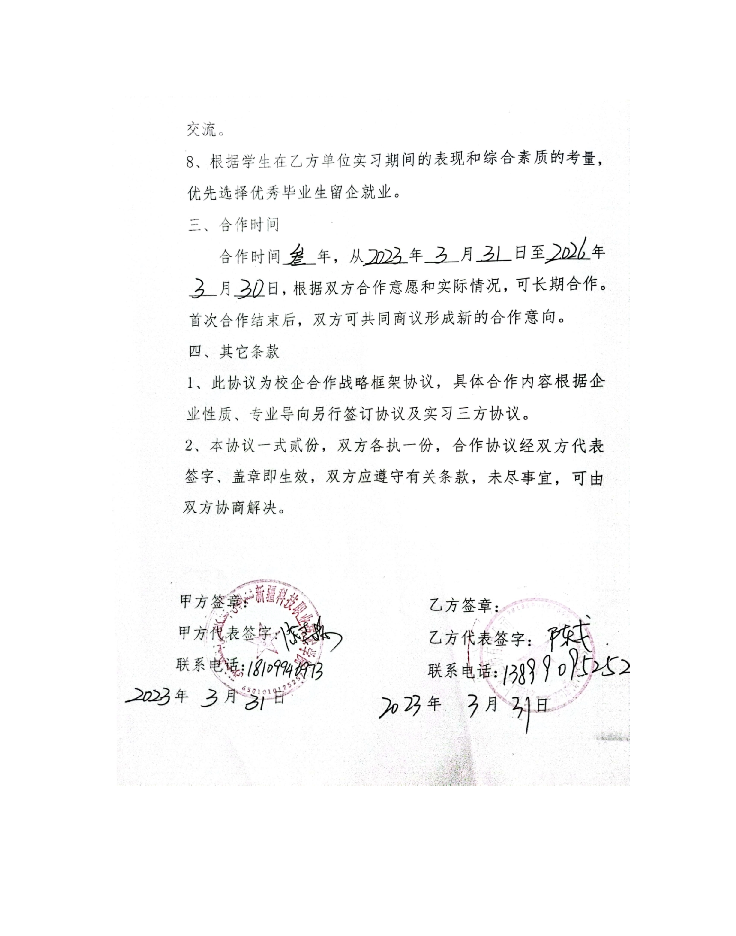 交流。
8、根据学生在乙方单位实习期间的表现和综合素质的考量,
优先选择优秀毕业生留企就业。
三、合作时间
合作时间 叁 年，从 2023 年 3 月 31 日至 2026 年
3 月 30 日，根据双方合作意愿和实际情况，可长期合作。
首次合作结束后，双方可共同商议形成新的合作意向。
四、其它条款
1、此协议为校企合作战略框架协议，具体合作内容根据企
业性质、专业导向另行签订协议及实习三方协议。
2、本协议一式贰份，双方各执一份，合作协议经双方代表
签字、盖章即生效，双方应遵守有关条款，未尽事宜，可由
双方协商解决。
甲方签章:
新疆科技职业
甲方代表签字:
联系电话:
2023 年 3 月 31 日
乙方签章:
乙方代表签字: 陈
联系电话: 13899095252
2023 年 3 月 31 日